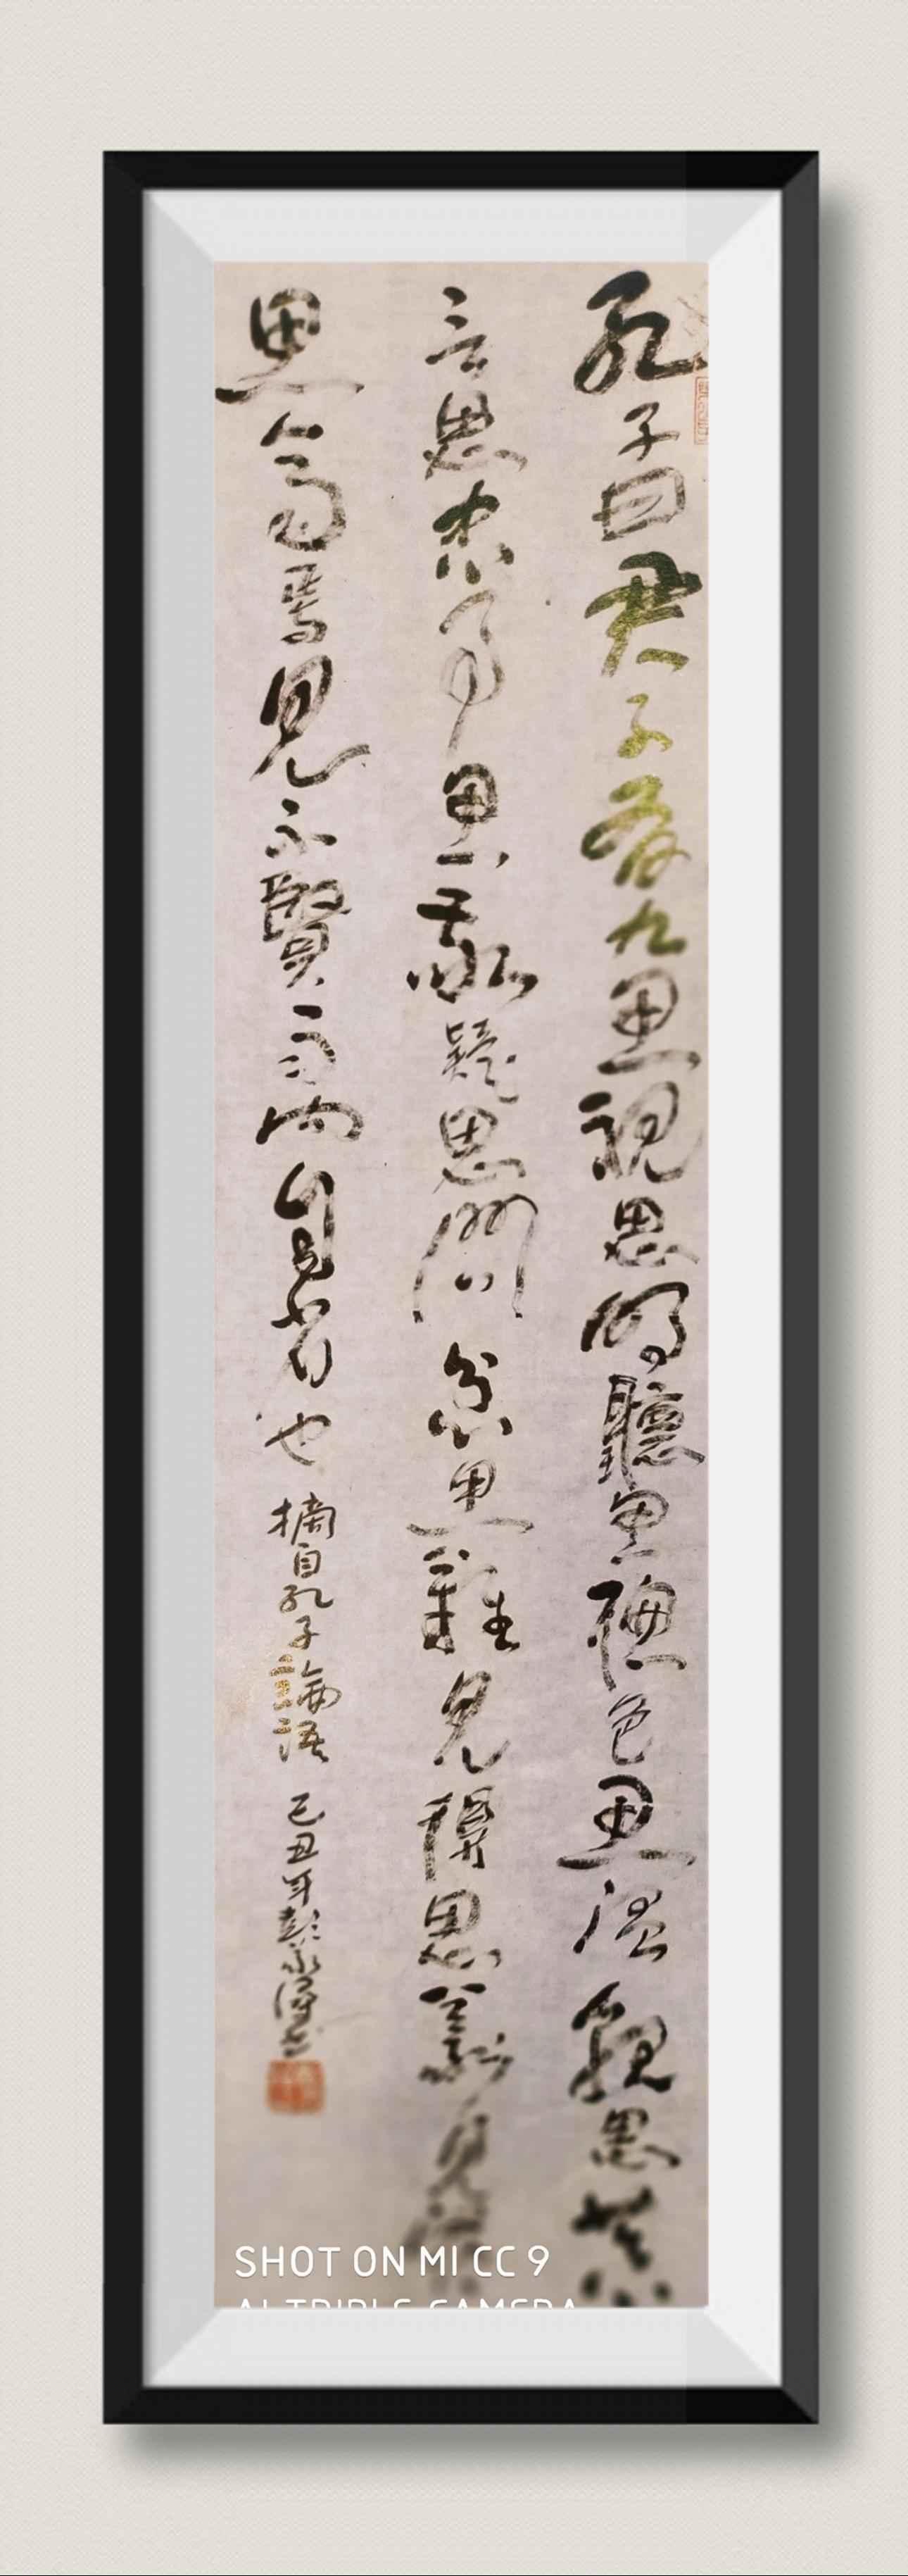 孔子曰君子有九思視思明聽思聰色思溫貌思恭
言思忠事思敬疑思問忿思難見得思義見賢
思齊焉見不賢而內自省也 摘自孔子論語 己丑年彭永
SHOT ON MI CC 9
AI TRIPLE CAMERA